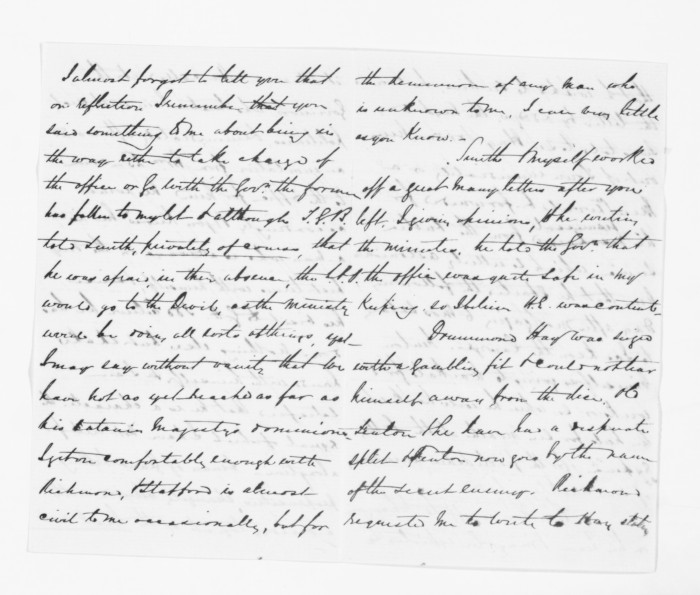 I almost forgot to tell you that
on reflection I remember that you
said something to me about being in
the way either to take charge of
the office or go with the Govr. the former
has fallen to my lot & although
told Smith, privately of course, that
he was afraid in their absence, the the office
would go to the Devil, as the Ministry
would be doing all sorts of things, yet
I may say without vanity that we
have not as yet reached as far as
his Satanic Majesty's dominions
I get on comfortably enough with
Richmond, & Stafford is almost
civil to me occasionally, but for
the of any man who
is unknown to me, I care very little
as you know. -
Smith & myself worked
off a great many letters after you
left. I giving opinions, & he writing
the minutes, he told the Govr. that
was quite safe in my
keeping, so I believe H.E. was content
Drummond Hay was seized
with a gambling fit & could not tear
himself away from the dice. He
Fenton & he have had a desperate
split & Fenton now goes by the name
of the secret enemy. Richmond
requested me to write to Hay stating